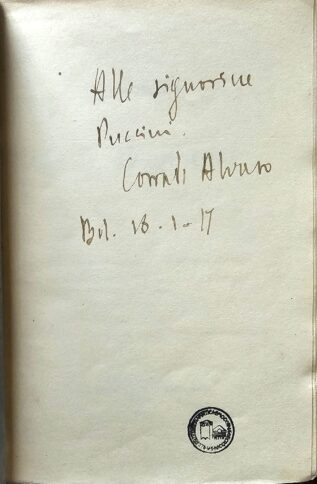 Alle signorine
Puccini.
Corrado Alvaro
Bol. 18-1-17